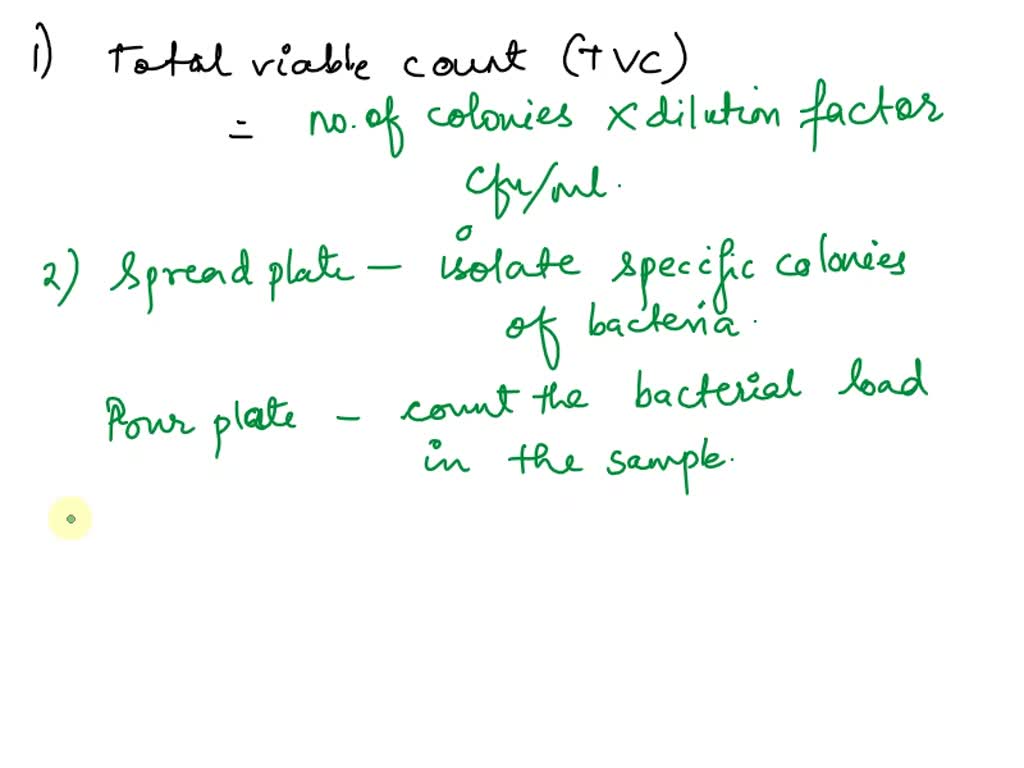 1) Total viable count (TVC)
= no. of colonies x dilution factor
cfu/ml.
2) Spread plate - isolate specific colonies
of bacteria.
Pour plate - count the bacterial load
in the sample.